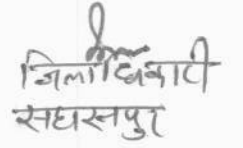 जिलाधिकारी
सहारनपुर